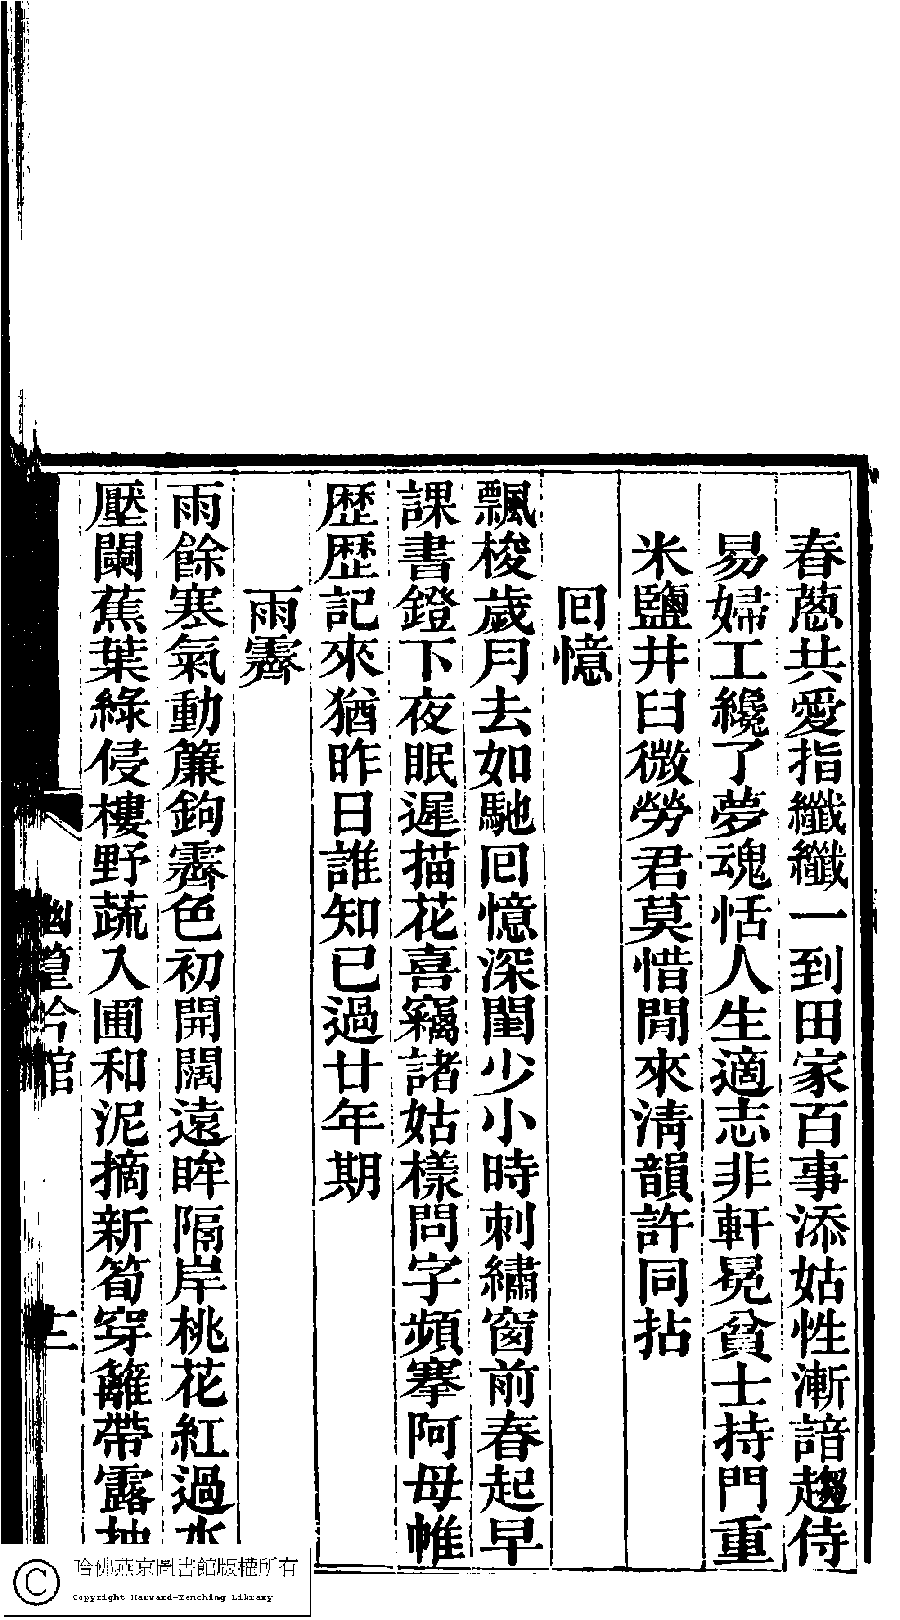 春蔥共愛指纖纖一到田家百事添姑性漸諳趨侍
易婦工纔了夢魂恬人生適志非軒冕貧士持門重
米鹽井臼微勞君莫惜閒來淸韻許同拈
回憶
飄梭歲月去如馳回憶深閨少小時刺繡窗前春起早
課書鐙下夜眠遲描花喜竊諸姑樣問字頻搴阿母帷
歴歴記來猶昨日誰知已過廿年期
雨霽
雨餘寒氣動簾鉤霽色初開闊遠眸隔岸桃花紅過水
壓闌蕉葉綠侵樓野蔬入圃和泥摘新筍穿籬帶露抽
吟館
哈佛燕京圖書館版權所有
Copyright Harvard-Yenching Library